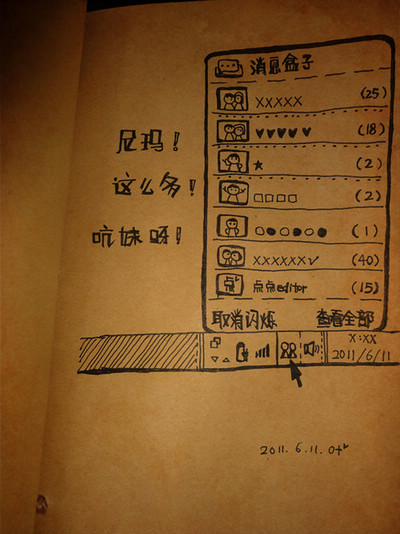 消息盒子
XXXXX (25)
♥♥♥♥♥ (18)
★ (2)
□□□□ (2)
○●○●○● (1)
XXXXXX✓ (40)
点 点点editor (15)
取消闪烁 查看全部
尼玛！
这么多！
吭妹呀！
X:XX
2011/6/11
2011.6.11.